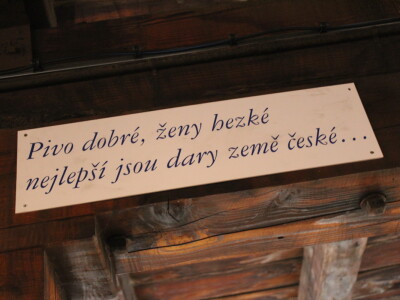 Pivo dobré, ženy hezké
nejlepší jsou dary země české...